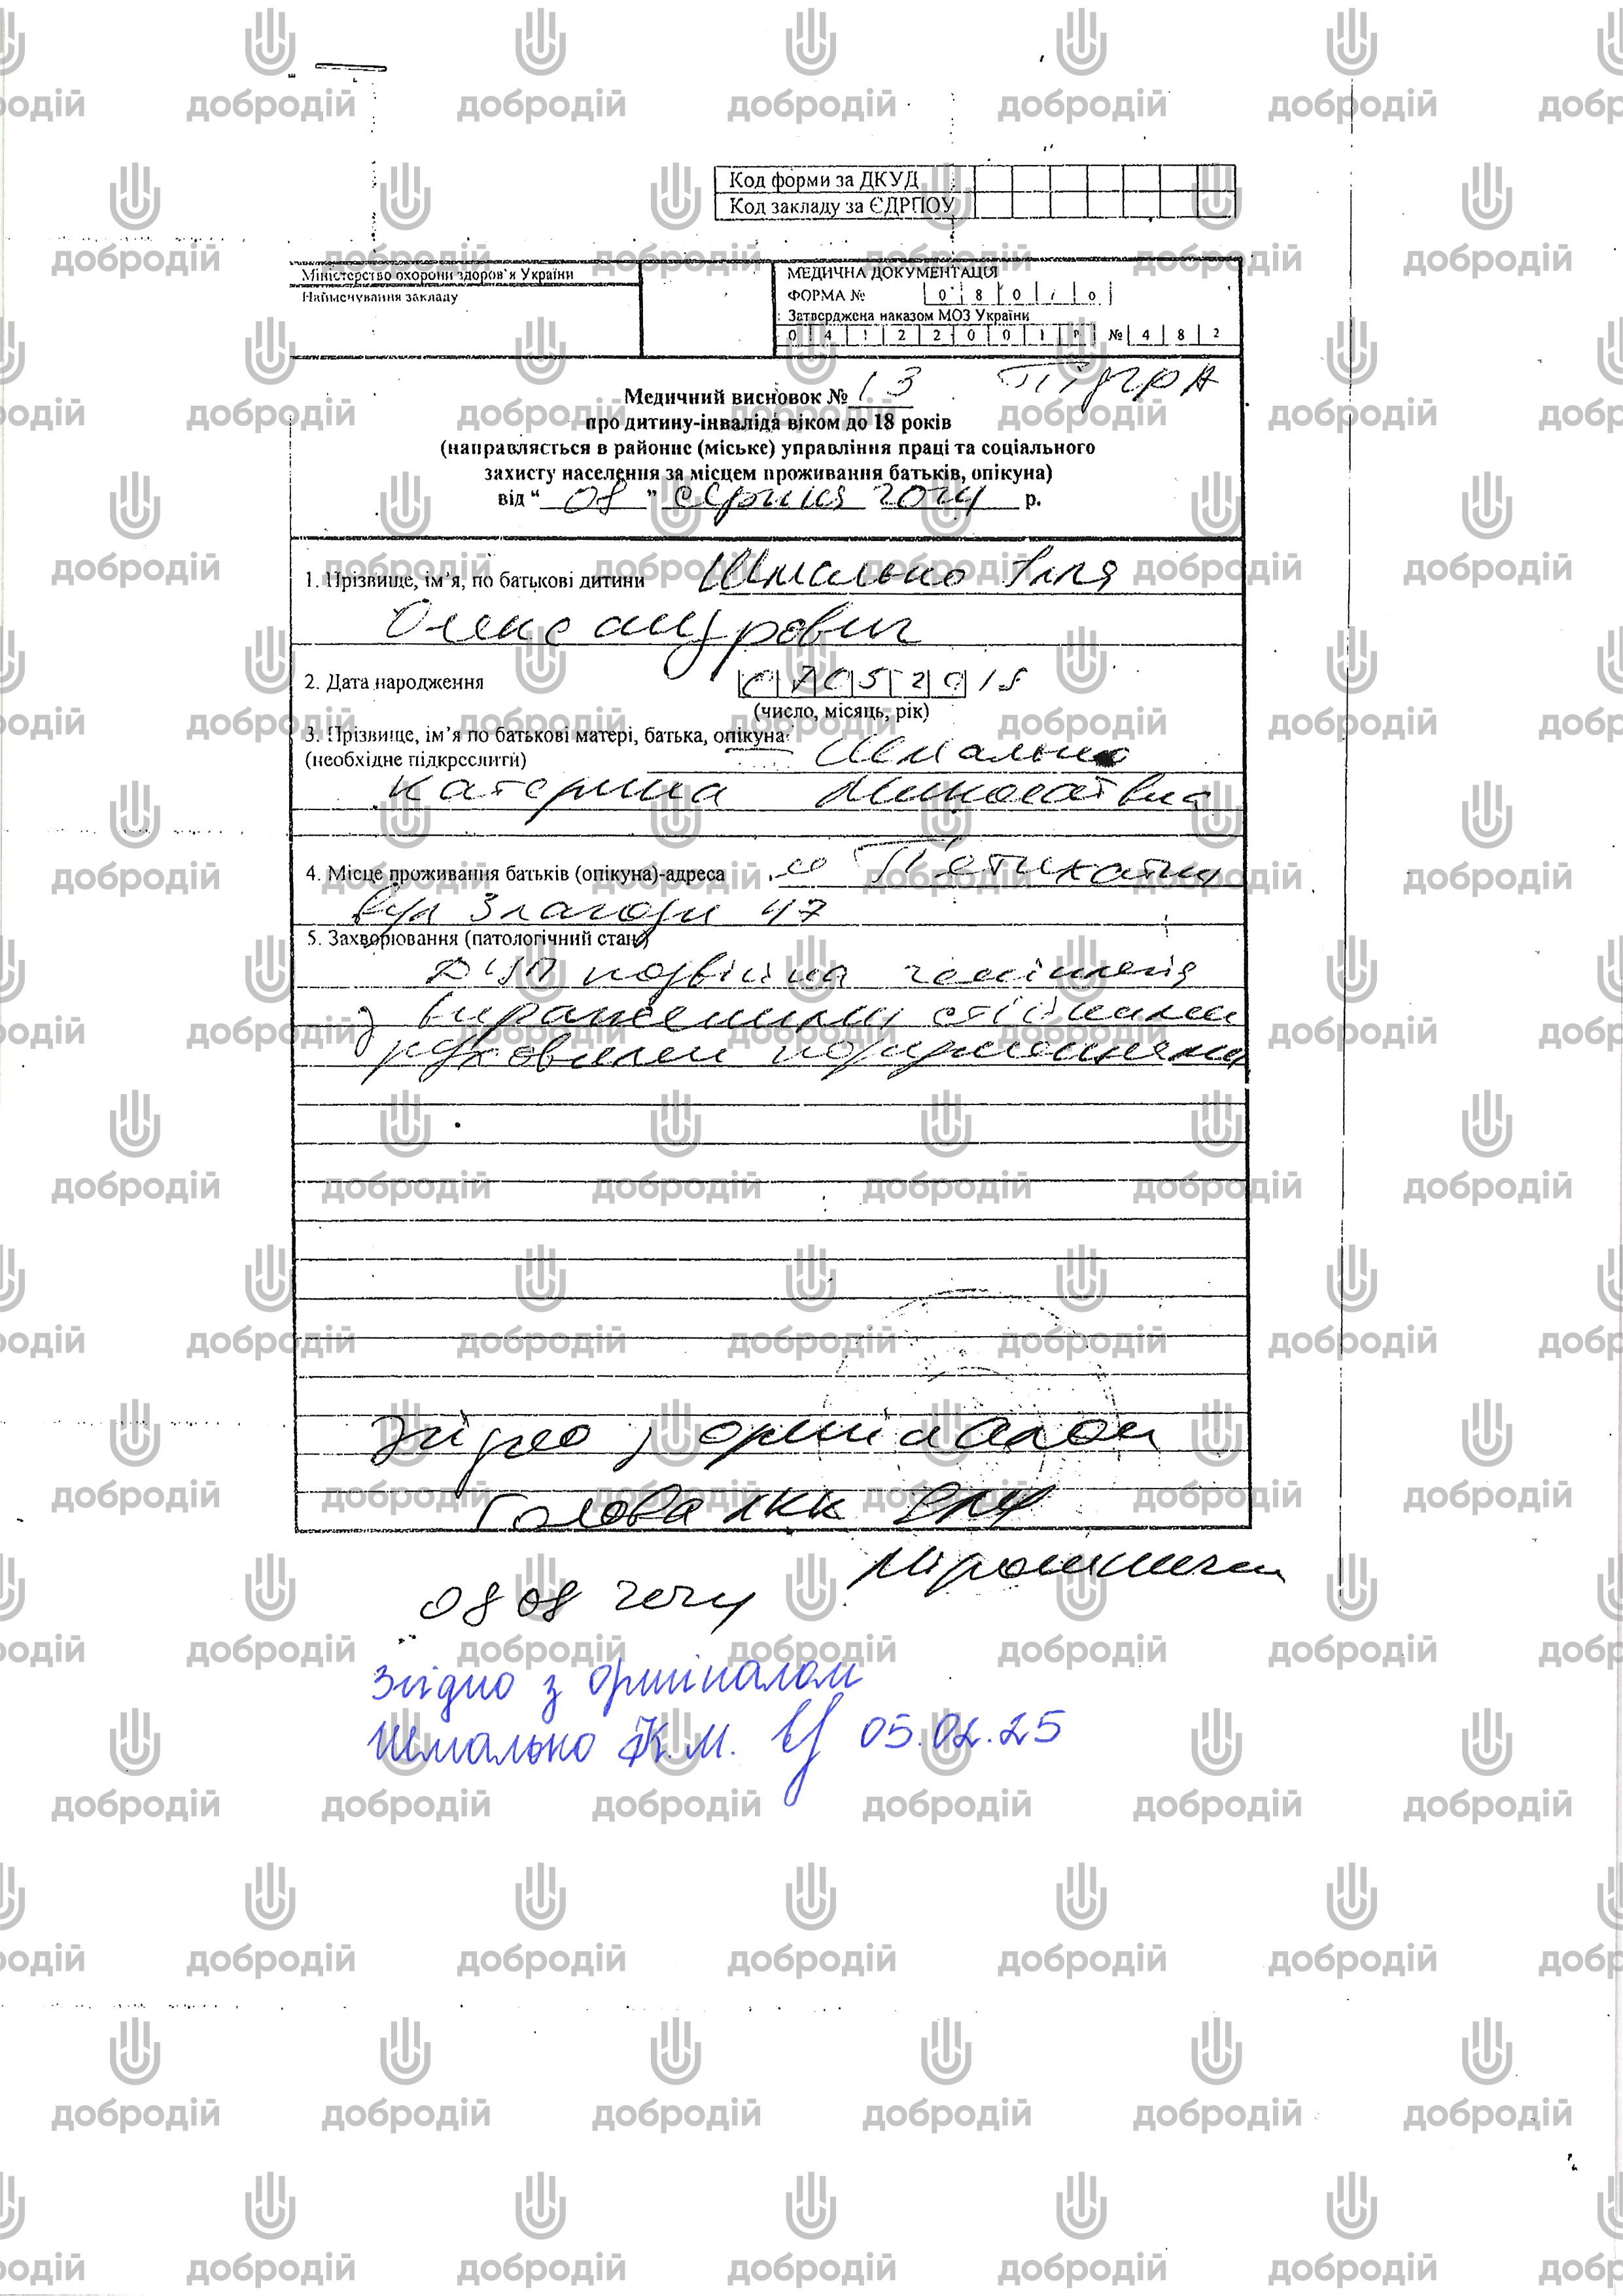 Код форми за ДКУД
Код закладу за ЄДРПОУ
Міністерство охорони здоров'я України
Найменування закладу
МЕДИЧНА ДОКУМЕНТАЦІЯ
ФОРМА № 0 8 0 / о
Затверджена наказом МОЗ України
0 4 1 2 2 0 0 1 р № 4 8 2
Медичний висновок № 13 Підгр А
про дитину-інваліда віком до 18 років
(направляється в районне (міське) управління праці та соціального
захисту населення за місцем проживання батьків, опікуна)
від “ 08 ” серпня 2024 р.
1. Прізвище, ім’я, по батькові дитини Шмалько Ілля
Олександрович
2. Дата народження 07052018
(число, місяць, рік)
3. Прізвище, ім’я по батькові матері, батька, опікуна
(необхідне підкреслити) Шмалько
Катерина Миколаївна
4. Місце проживання батьків (опікуна)-адреса м П'ятихатки
вул Злагоди 47
5. Захворювання (патологічний стан)
ДЦП подвійна геміплегія
з вираженими стійкими
руховими порушеннями
Згідно з оригіналом
Голова ЛКК
08 08 2024
Згідно з оригіналом
Шмалько К.М. 05.02.25
добродій